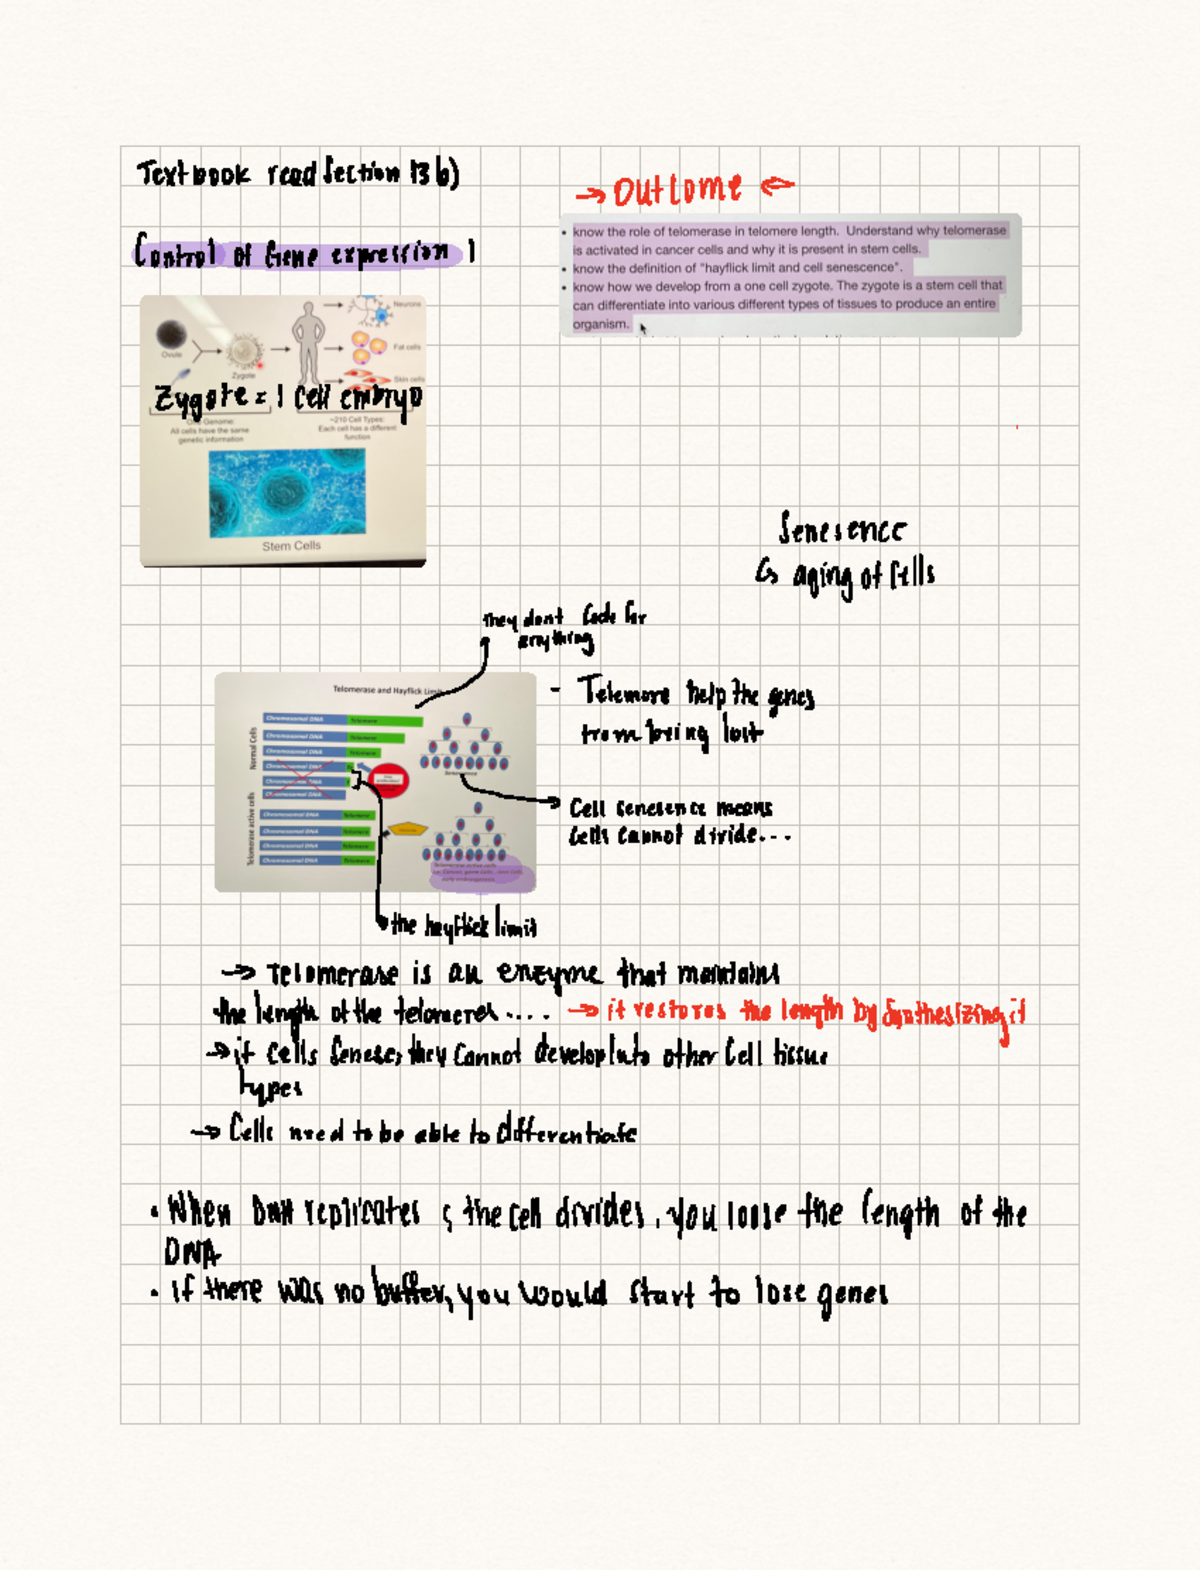 Textbook read Section 13b)
→ Outcome ←
Control of Gene expression 1
• know the role of telomerase in telomere length. Understand why telomerase
is activated in cancer cells and why it is present in stem cells.
• know the definition of "hayflick limit and cell senescence".
• know how we develop from a one cell zygote. The zygote is a stem cell that
can differentiate into various different types of tissues to produce an entire
organism.
Neurons
Ovule
Fat cells
Zygote
Skin cells
Zygote = 1 cell embryo
Genome:
All cells have the same
genetic information
~210 Cell Types:
Each cell has a different
function
Stem Cells
Senesence
↳ aging of cells
they dont code for
anything
Telomerase and Hayflick Limit
Normal Cells
Chromosomal DNA Telomere
Chromosomal DNA Telomere
Chromosomal DNA Telomere
Chromosomal DNA
Chromosomal DNA
Chromosomal DNA
Telomerase active cells
Chromosomal DNA Telomere
Chromosomal DNA Telomere
Chromosomal DNA Telomere
Chromosomal DNA Telomere
- Telemore help the genes
from being lost
Cell senesence means
cells cannot divide...
the hayflick limit
→ Telomerase is an enzyme that maintains
the length of the telomeres.... → it restores the length by synthesizing it
→ if cells senesc, they cannot develop into other cell tissue
types
→ Cells need to be able to differentiate
• When DNA replicates & the cell divides, you loose the length of the
DNA
• if there was no buffer, you would start to lose genes